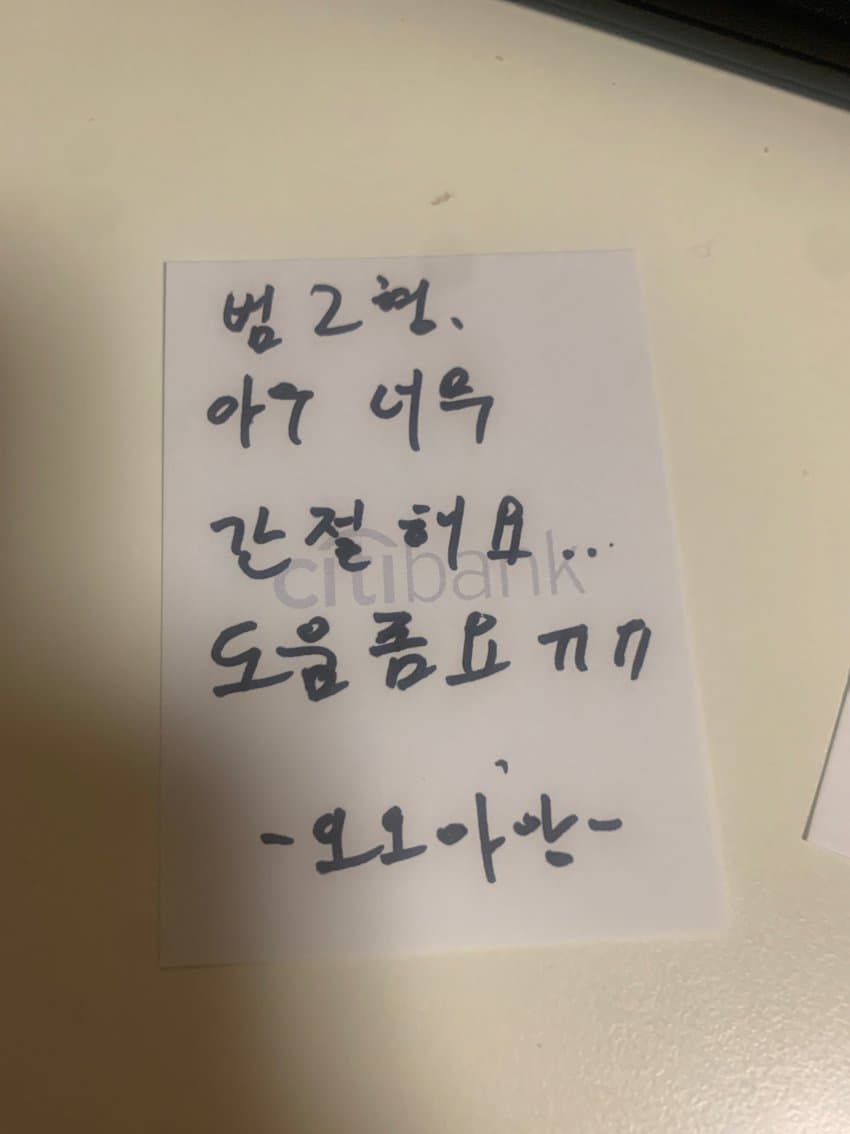 범그형.
아우 너무
간절해요...
citibank
도움좀요 ㅠㅠ
-오오아앙-